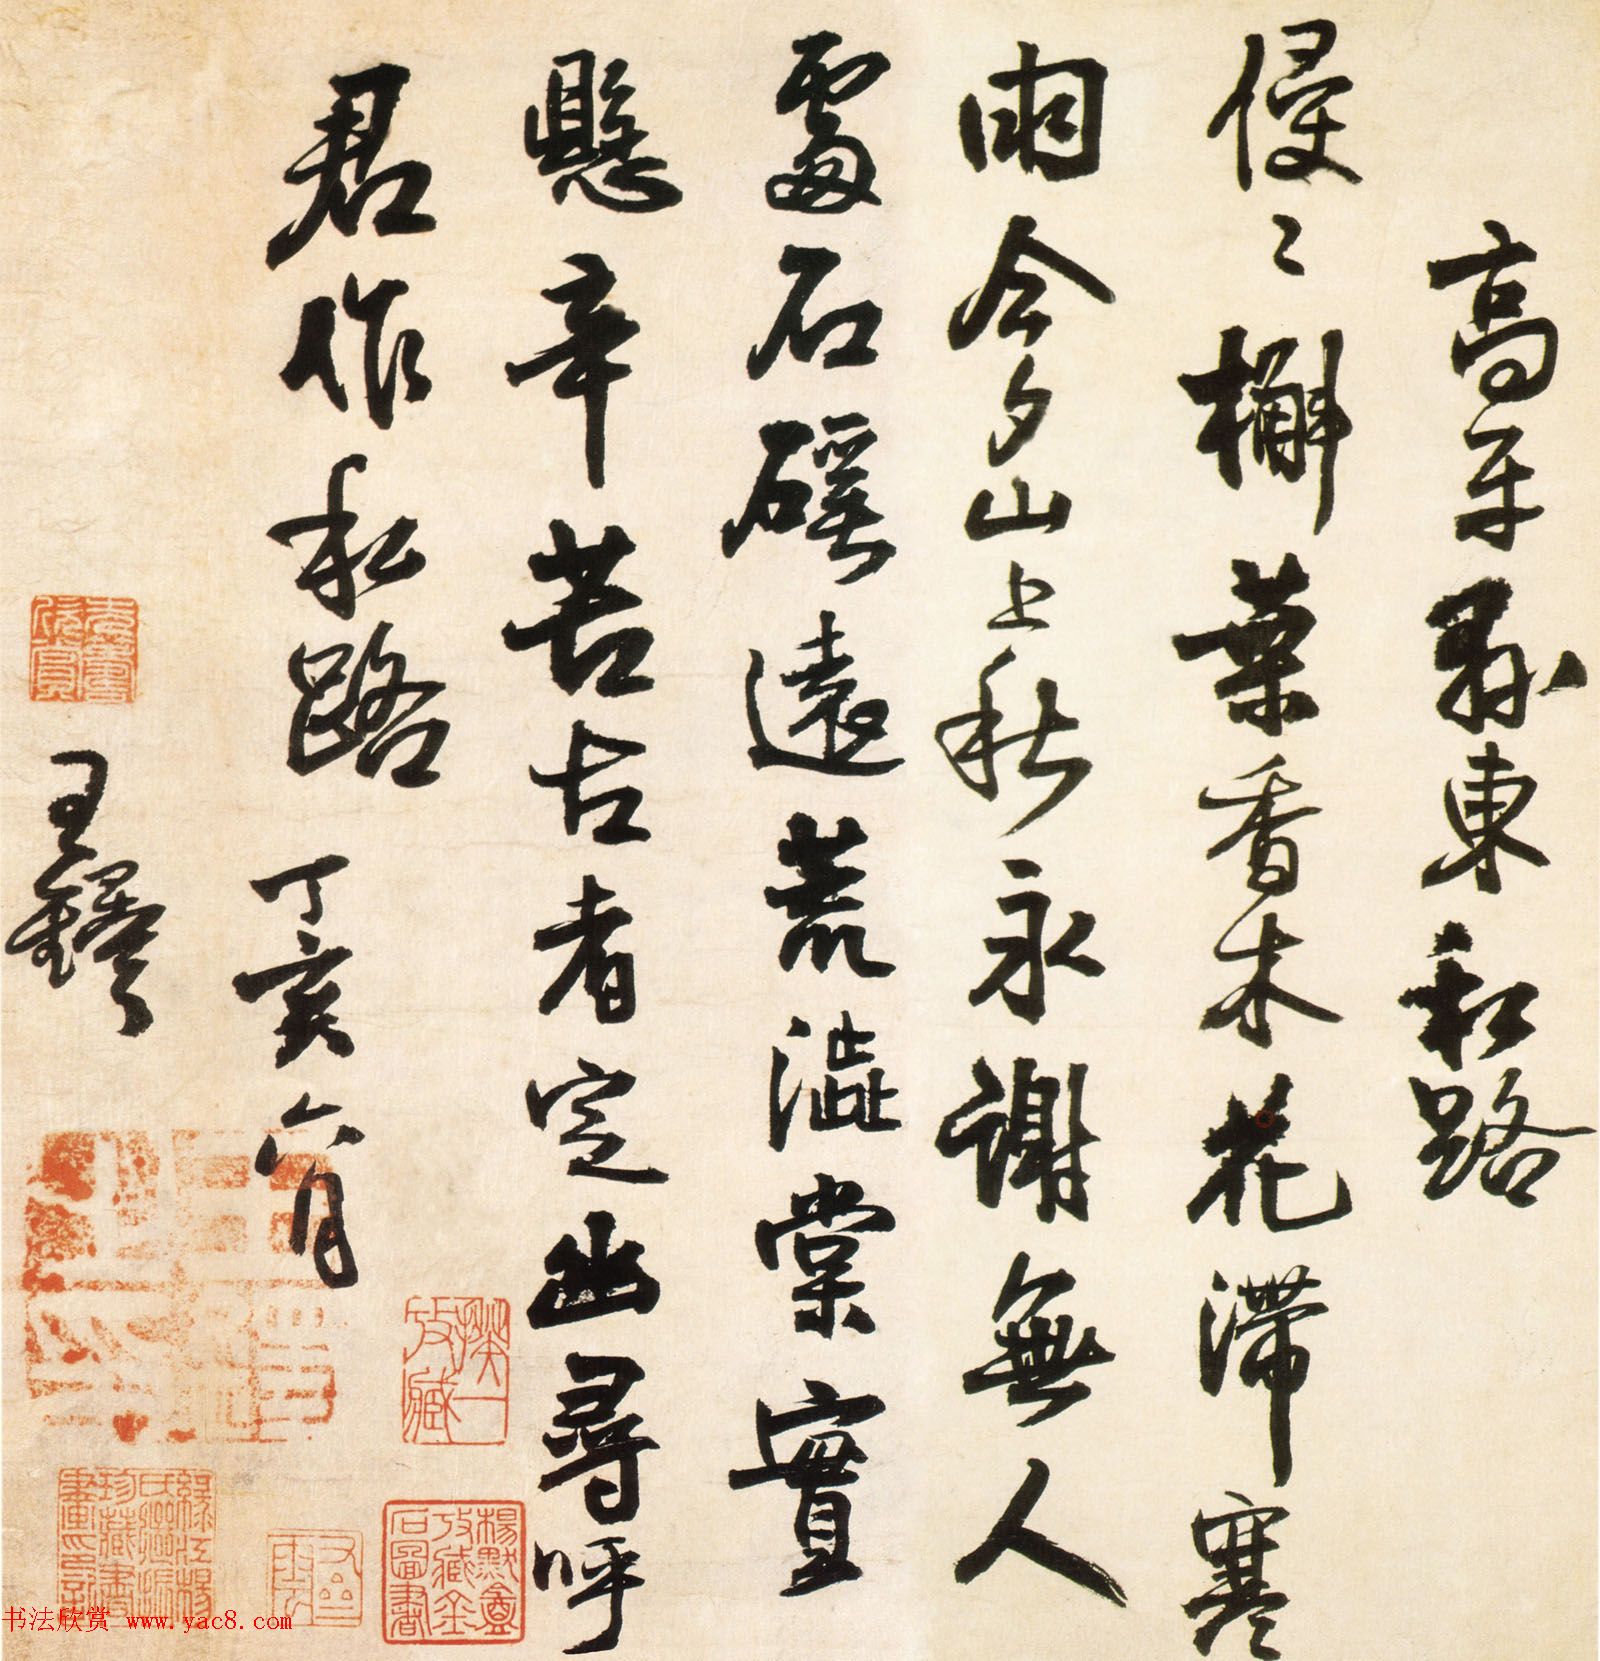 高平縣東私路
侵〻槲葉香木花滯寒
雨今夕山上秋永謝無人
處石磎遠荒澀棠實
懸辛苦古者定幽尋呼
君作私路 丁亥六月
王鐸
书法欣赏 www.yac8.com